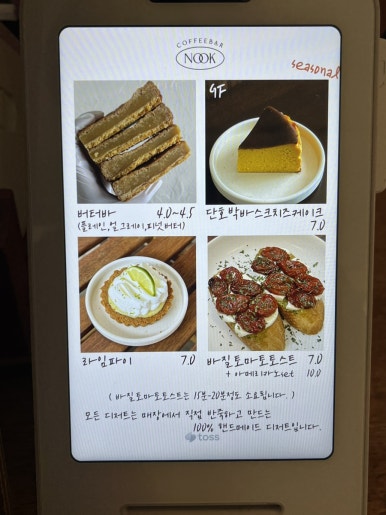 COFFEEBAR
NOOK
seasonal
GF
버터바 4.0~4.5
(플레인,얼그레이,피넛버터)
단호박바스크치즈케이크
7.0
라임파이 7.0
바질토마토토스트 7.0
+ 아메리카노set 10.0
( 바질토마토토스트는 15분-20분정도 소요됩니다. )
모든 디저트는 매장에서 직접 반죽하고 만드는
100% 핸드메이드 디저트입니다.
toss